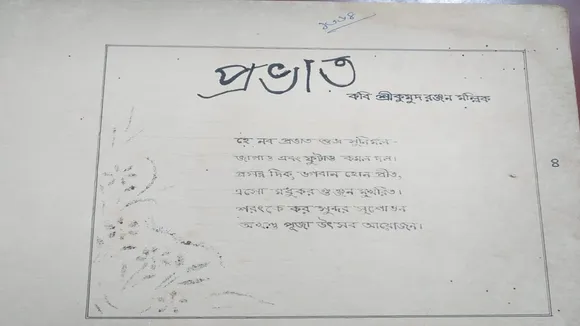 ১৩৬৪
প্রভাত
কবি শ্রীকুমুদরঞ্জন মল্লিক
হে নব প্রভাত শুভ্র সুনির্মল
জাগাও এবং ফুটাও কমল দল।
প্রসন্ন দিক, ভগবান হোন প্রীত,
এসো মধুকর গুঞ্জন মুখরিত।
শরৎকে কর সুন্দর সুশোভন
অখণ্ড পূজা উৎসব আয়োজন।
৪